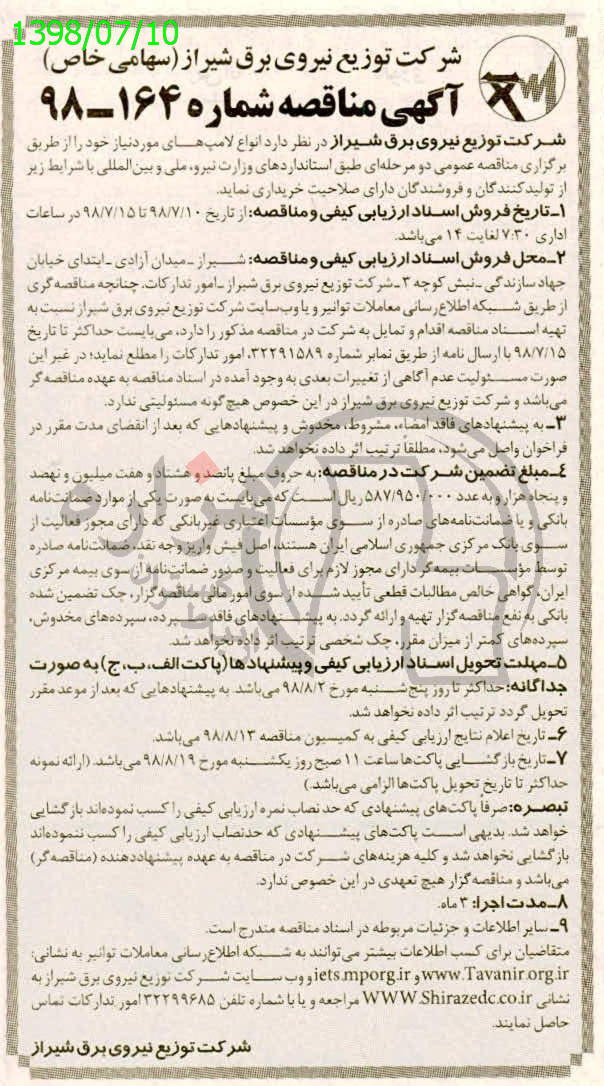 1398/07/10
شرکت توزیع نیروی برق شیراز (سهامی خاص)
آگهی مناقصه شماره ۱۶۴ــ۹۸
شرکت توزیع نیروی برق شیراز در نظر دارد انواع لامپ‌های موردنیاز خود را از طریق
برگزاری مناقصه عمومی دو مرحله‌ای طبق استانداردهای وزارت نیرو، ملی و بین‌المللی با شرایط زیر
از تولیدکنندگان و فروشندگان دارای صلاحیت خریداری نماید.
۱ـ تاریخ فروش اسناد ارزیابی کیفی و مناقصه: از تاریخ ۹۸/۷/۱۰ تا ۹۸/۷/۱۵ در ساعات
اداری ۷:۳۰ لغایت ۱۴ می‌باشد.
۲ـ محل فروش اسناد ارزیابی کیفی و مناقصه: شیراز ـ میدان آزادی ـ ابتدای خیابان
جهاد سازندگی ـ نبش کوچه ۳ ـ شرکت توزیع نیروی برق شیراز ـ امور تدارکات. چنانچه مناقصه‌گری
از طریق شبکه اطلاع‌رسانی معاملات توانیر و یا وب‌سایت شرکت توزیع نیروی برق شیراز نسبت به
تهیه اسناد مناقصه اقدام و تمایل به شرکت در مناقصه مذکور را دارد، می‌بایست حداکثر تا تاریخ
۹۸/۷/۱۵ با ارسال نامه از طریق نمابر شماره ۳۲۲۹۱۵۸۹، امور تدارکات را مطلع نماید؛ در غیر این
صورت مسئولیت عدم آگاهی از تغییرات بعدی به وجود آمده در اسناد مناقصه به عهده مناقصه‌گر
می‌باشد و شرکت توزیع نیروی برق شیراز در این خصوص هیچ گونه مسئولیتی ندارد.
۳ـ به پیشنهادهای فاقد امضاء، مشروط، مخدوش و پیشنهادهایی که بعد از انقضای مدت مقرر در
فراخوان واصل می‌شود، مطلقاً ترتیب اثر داده نخواهد شد.
۴ـ مبلغ تضمین شرکت در مناقصه: به حروف مبلغ پانصد و هشتاد و هفت میلیون و نهصد
و پنجاه هزار و به عدد ۵۸۷/۹۵۰/۰۰۰ ریال است که می‌بایست به صورت یکی از موارد ضمانت‌نامه
بانکی و یا ضمانت‌نامه‌های صادره از سوی مؤسسات اعتباری غیربانکی که دارای مجوز فعالیت از
سوی بانک مرکزی جمهوری اسلامی ایران هستند، اصل فیش واریز وجه نقد، ضمانت‌نامه صادره
توسط مؤسسات بیمه‌گر دارای مجوز لازم برای فعالیت و صدور ضمانت‌نامه از سوی بیمه مرکزی
ایران، گواهی خالص مطالبات قطعی تأیید شده از سوی امور مالی مناقصه‌گزار، چک تضمین شده
بانکی به نفع مناقصه‌گزار تهیه و ارائه گردد. به پیشنهادهای فاقد سپرده، سپرده‌های مخدوش،
سپرده‌های کمتر از میزان مقرر، چک شخصی ترتیب اثر داده نخواهد شد.
۵ـ مهلت تحویل اسناد ارزیابی کیفی و پیشنهادها (پاکت الف، ب، ج) به صورت
جداگانه: حداکثر تا روز پنج‌شنبه مورخ ۹۸/۸/۲ می‌باشد. به پیشنهادهایی که بعد از موعد مقرر
تحویل گردد ترتیب اثر داده نخواهد شد.
۶ـ تاریخ اعلام نتایج ارزیابی کیفی به کمیسیون مناقصه ۹۸/۸/۱۳ می‌باشد.
۷ـ تاریخ بازگشایی پاکت‌ها ساعت ۱۱ صبح روز یکشنبه مورخ ۹۸/۸/۱۹ می‌باشد. (ارائه نمونه
حداکثر تا تاریخ تحویل پاکت‌ها الزامی می‌باشد.)
تبصره: صرفا پاکت‌های پیشنهادی که حد نصاب نمره ارزیابی کیفی را کسب نموده‌اند بازگشایی
خواهد شد. بدیهی است پاکت‌های پیشنهادی که حدنصاب ارزیابی کیفی را کسب ننموده‌اند
بازگشایی نخواهد شد و کلیه هزینه‌های شرکت در مناقصه به عهده پیشنهاددهنده (مناقصه‌گر)
می‌باشد و مناقصه‌گزار هیچ تعهدی در این خصوص ندارد.
۸ـ مدت اجرا: ۳ ماه.
۹ـ سایر اطلاعات و جزئیات مربوطه در اسناد مناقصه مندرج است.
متقاضیان برای کسب اطلاعات بیشتر می‌توانند به شبکه اطلاع‌رسانی معاملات توانیر به نشانی:
www.Tavanir.org.ir و iets.mporg.ir و وب سایت شرکت توزیع نیروی برق شیراز به
نشانی WWW.Shirazedc.co.ir مراجعه و یا با شماره تلفن ۳۲۲۹۹۶۸۵ امور تدارکات تماس
حاصل نمایند.
شرکت توزیع نیروی برق شیراز